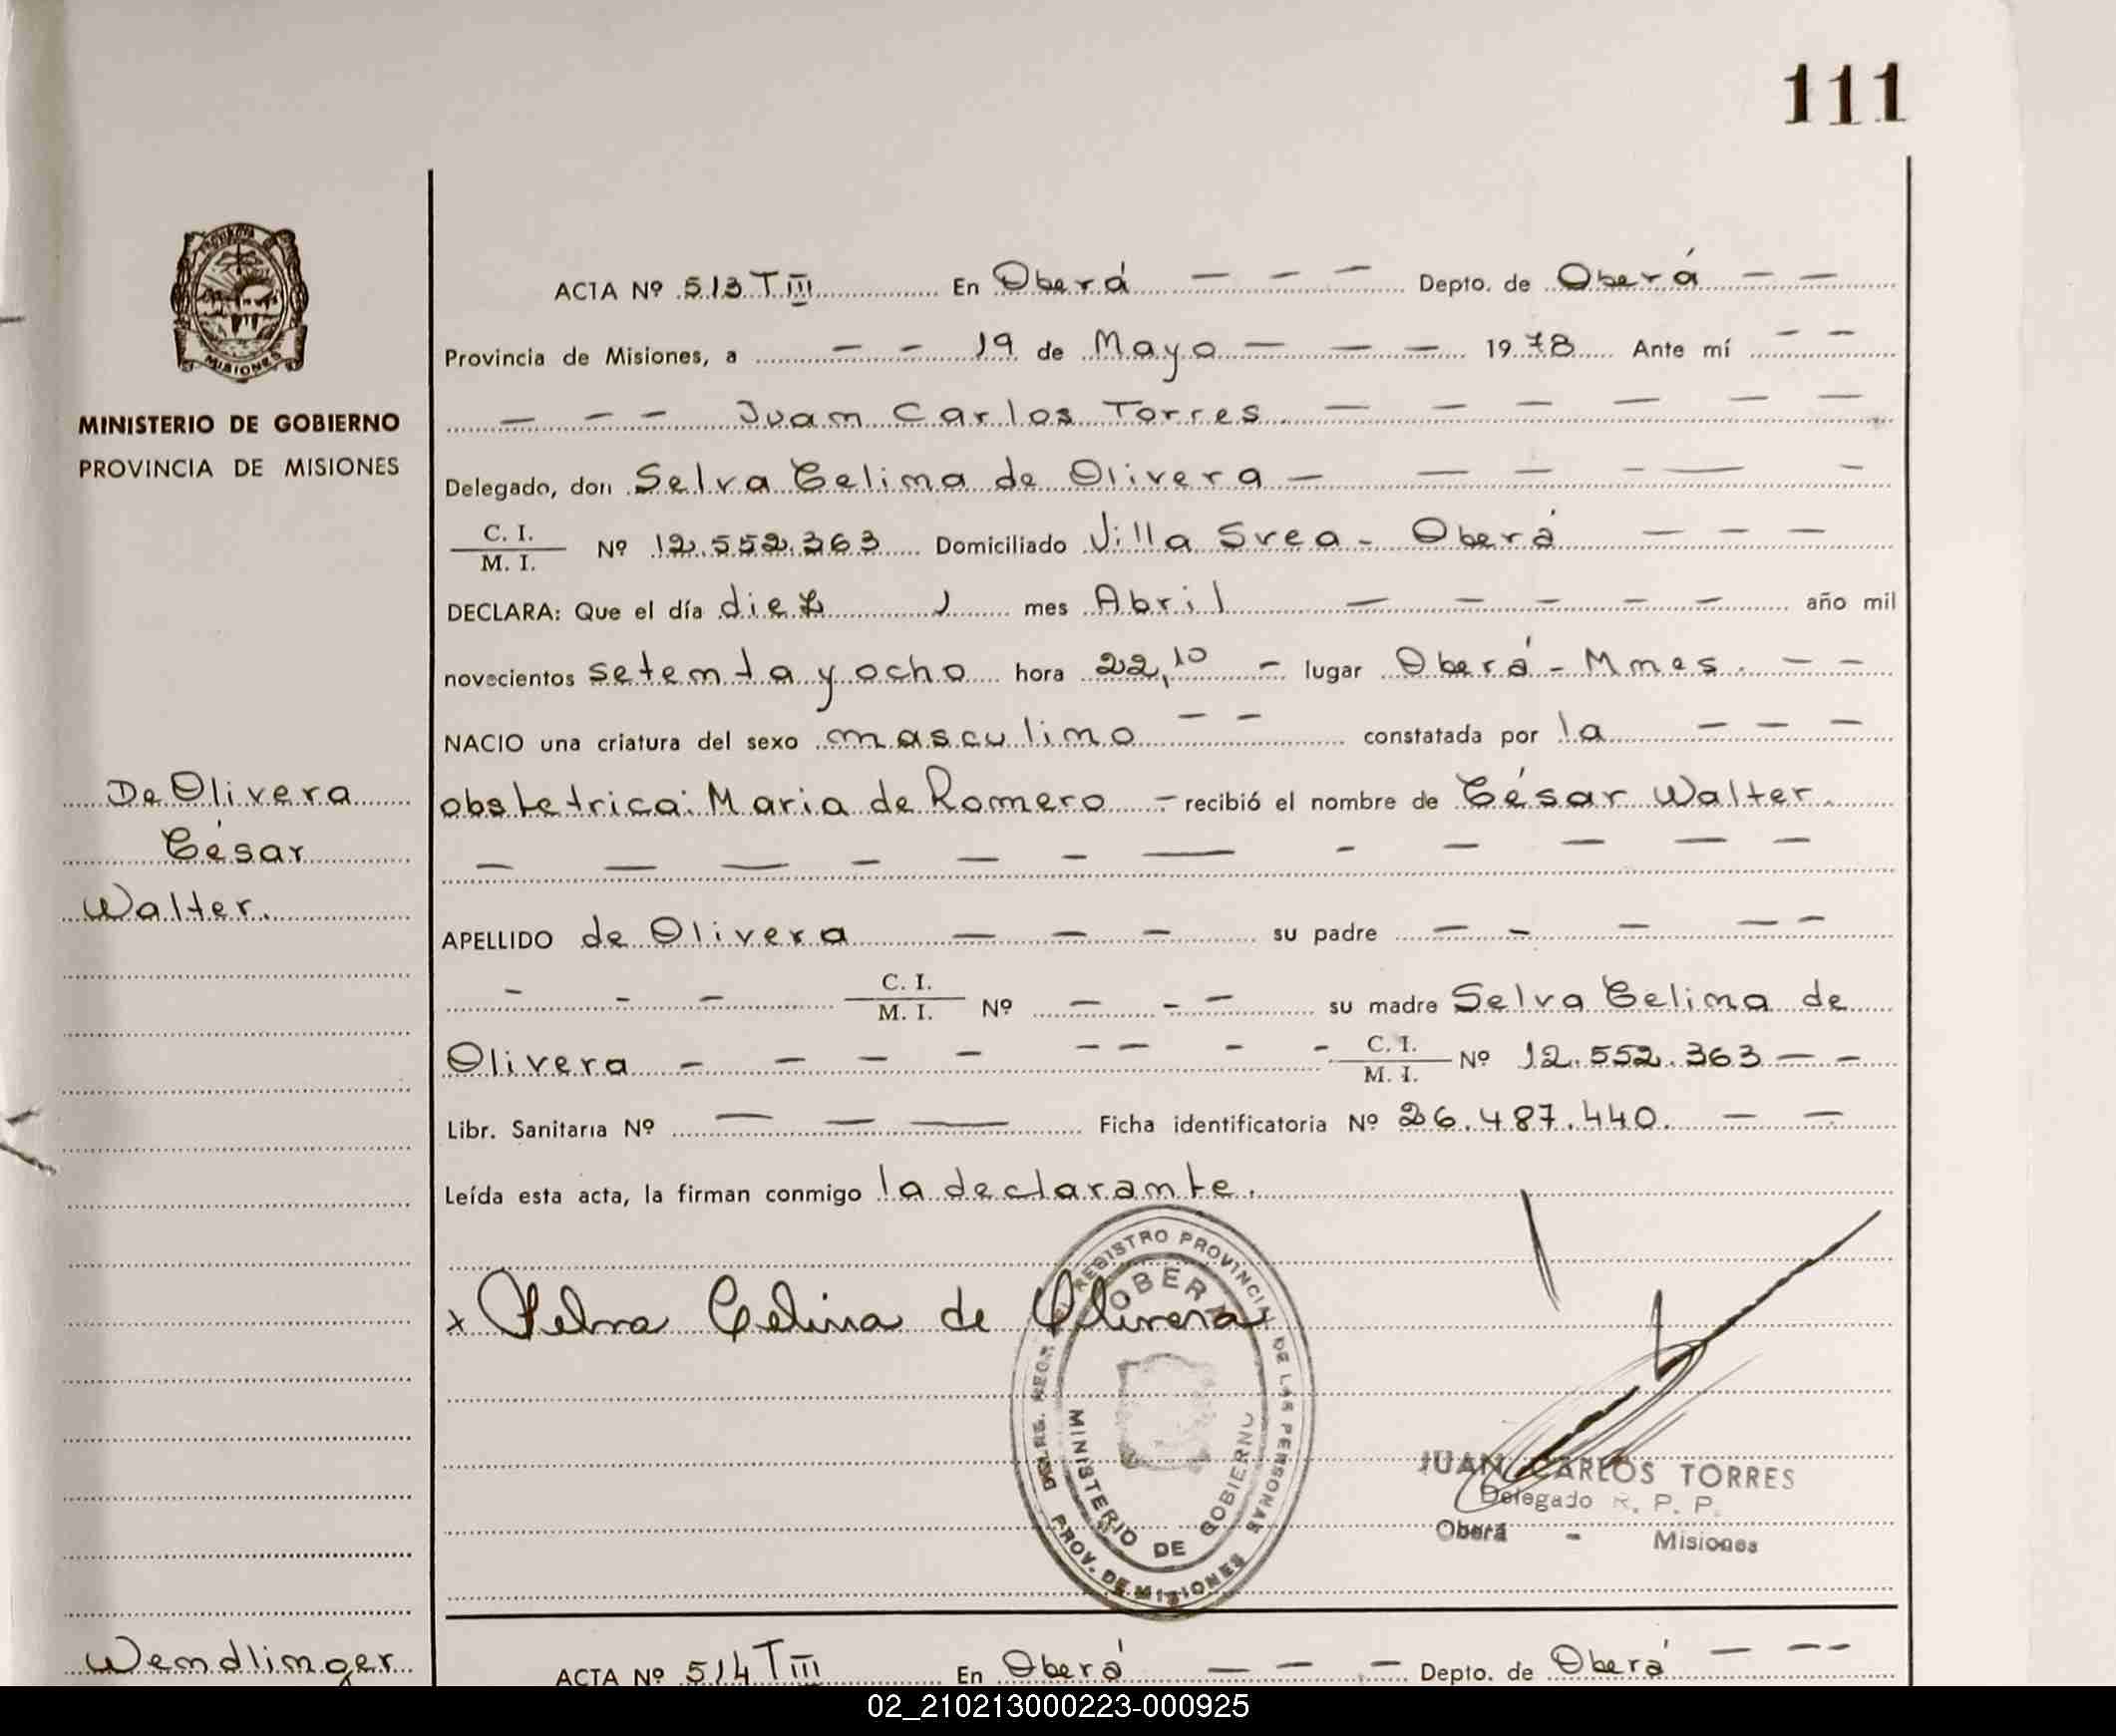 111
MISIONES
MINISTERIO DE GOBIERNO
PROVINCIA DE MISIONES
De Olivera
César
Walter.
ACTA Nº 513 T III En Oberá — — — Depto. de Oberá — —
Provincia de Misiones, a — — 19 de Mayo — — — 1978 Ante mí — —
— — — Juan Carlos Torres — — — — — —
Delegado, don Selva Celina de Olivera — — — — — —
C. I.
M. I. Nº 12.552.363 Domiciliado Villa Svea - Oberá — — —
DECLARA: Que el día diez mes Abril — — — — — año mil
novecientos setenta y ocho hora 22,10 — lugar Oberá - Mnes. — —
NACIO una criatura del sexo masculino — — constatada por la — — —
obstetrica: Maria de Romero — recibió el nombre de César Walter.
— — — — — — — — — — — —
APELLIDO de Olivera — — — su padre — — — — —
— — — C. I.
M. I. Nº — — — su madre Selva Celina de
Olivera — — — — — — — — C. I.
M. I. Nº 12.552.363 — —
Libr. Sanitaria Nº — — — Ficha identificatoria Nº 26.487.440. — —
Leída esta acta, la firman conmigo la declarante.
x Selva Celina de Olivera
REGISTRO PROVINCIAL DE LAS PERSONAS
OBERA
MINISTERIO DE GOBIERNO
PROV. DE MISIONES
JUAN CARLOS TORRES
Delegado R. P. P.
Oberá - Misiones
Wendlinger
ACTA Nº 514 T III En Oberá — — — Depto. de Oberá — — —
02_210213000223-000925